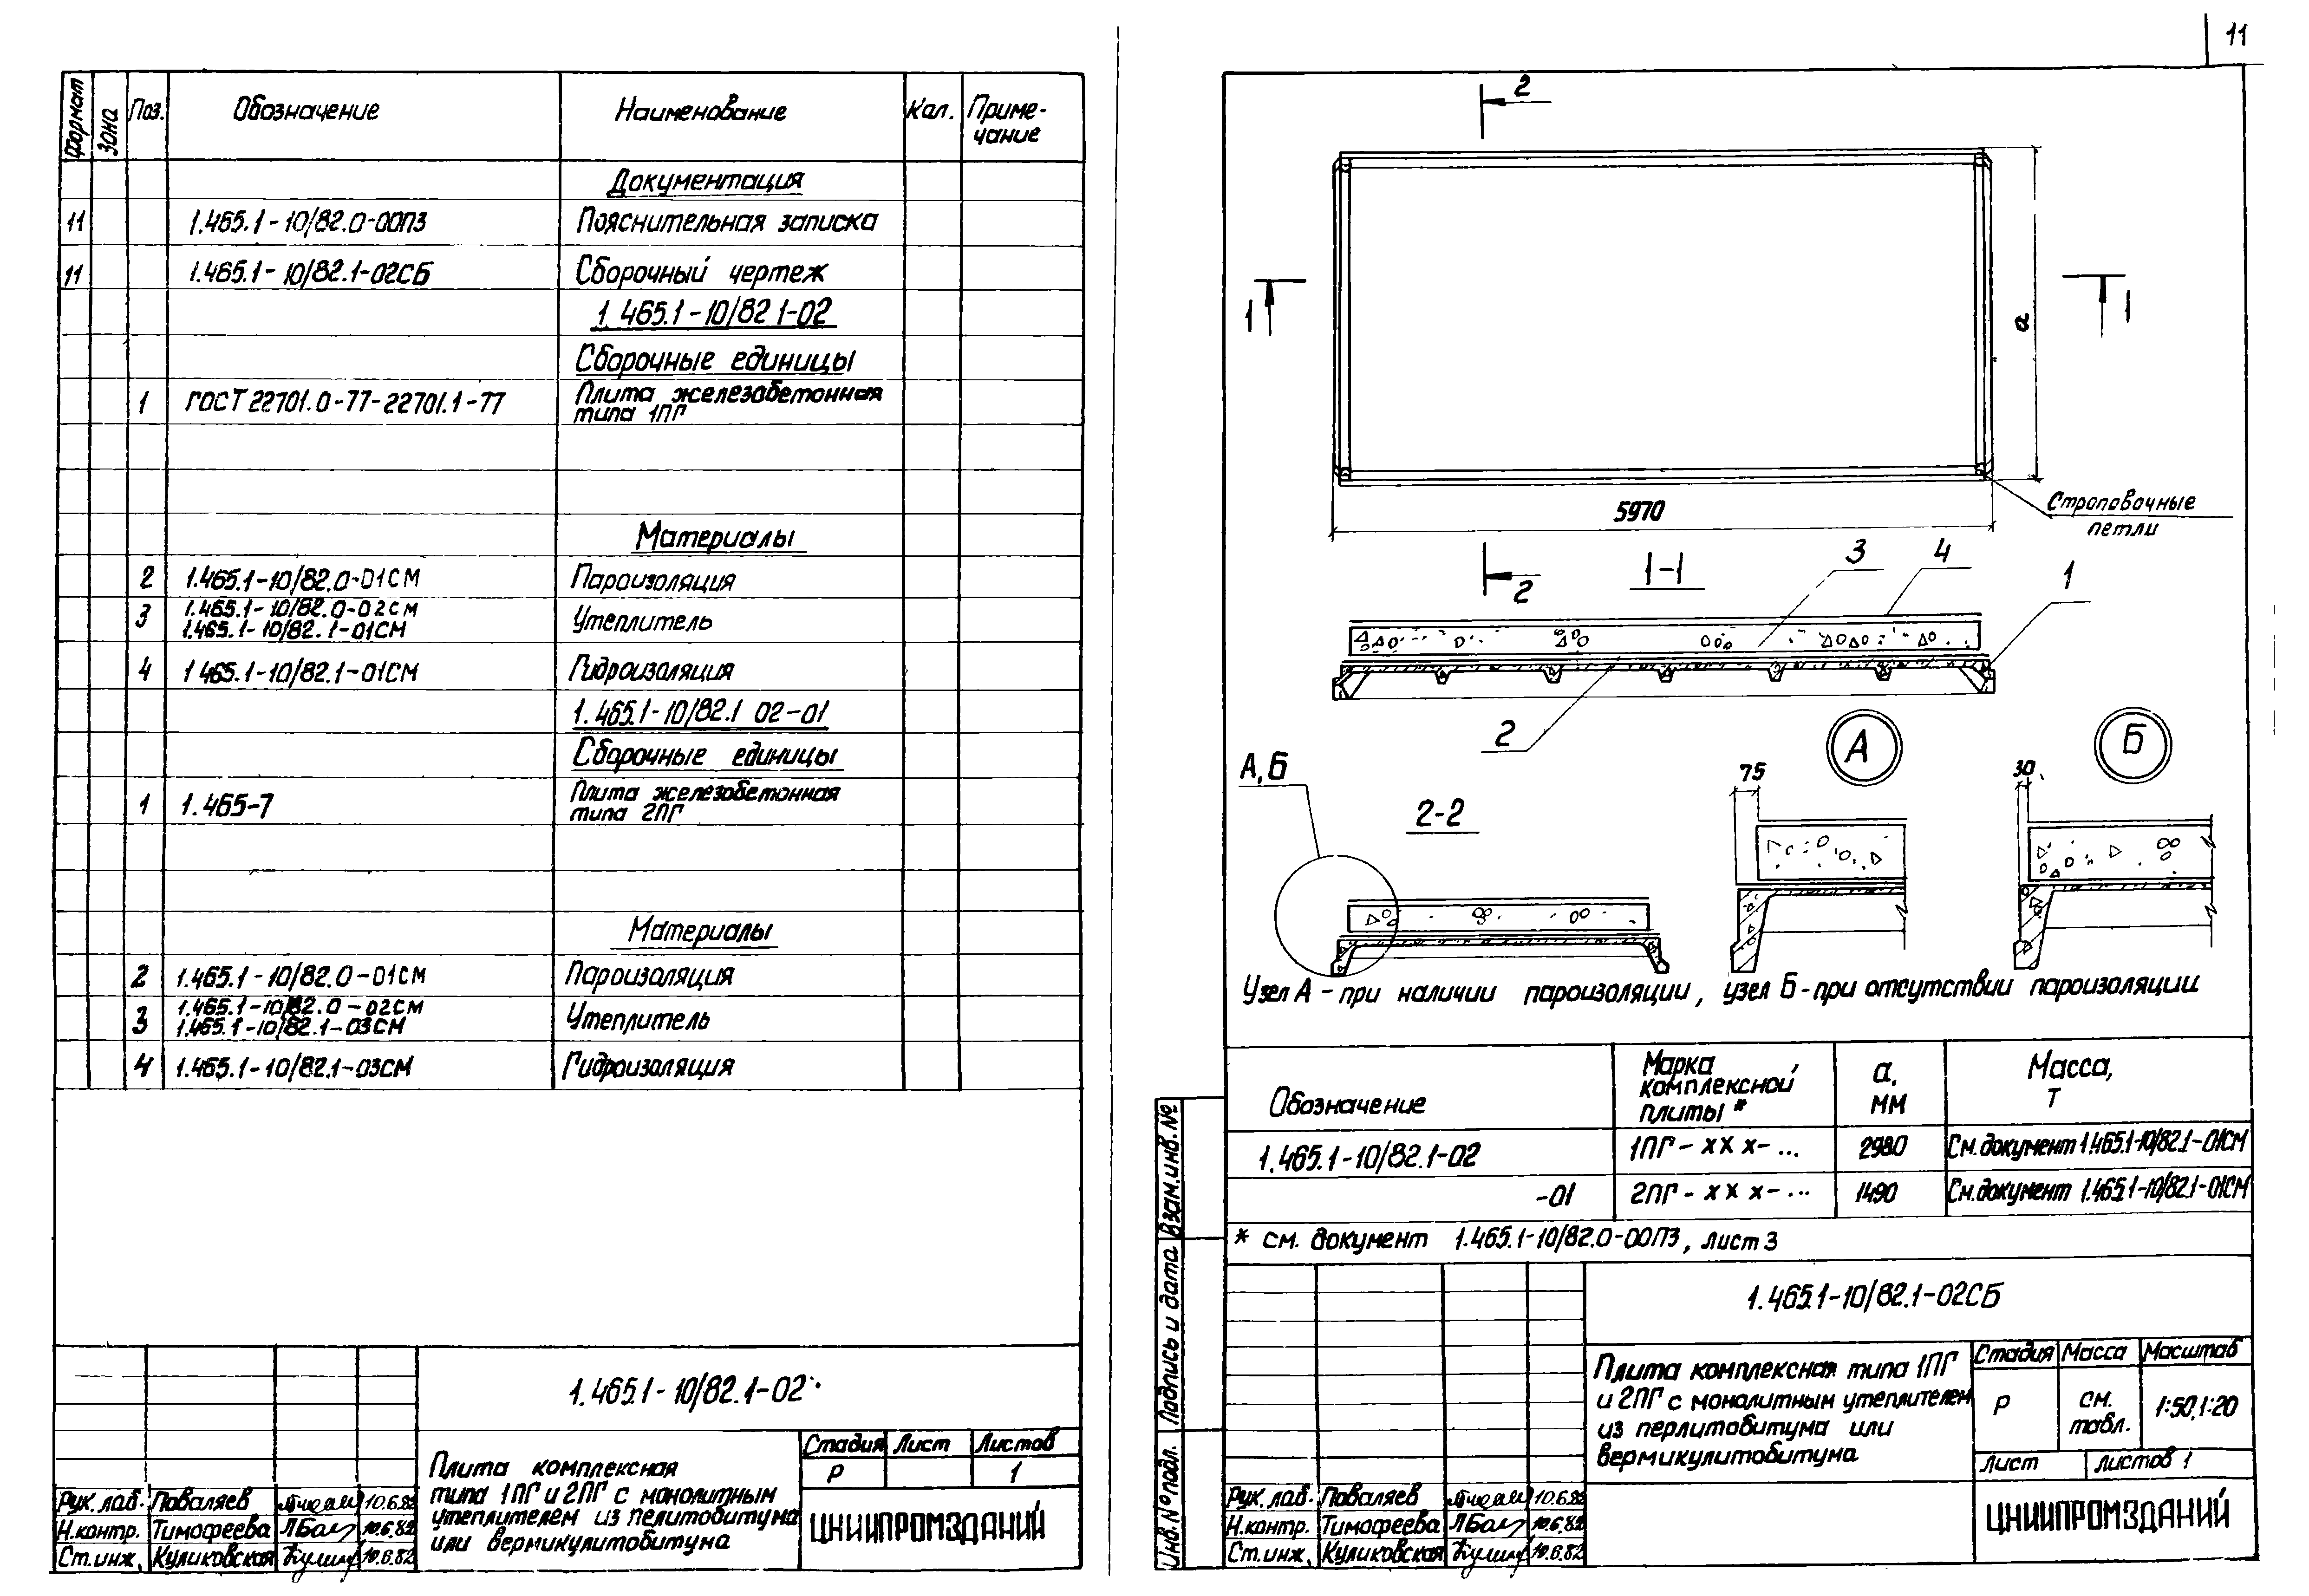 11
Формат
Зона
Поз.
Обозначение
Наименование
Кол.
Приме-
чание
Документация
11 1.465.1-10/82.0-00ПЗ Пояснительная записка
11 1.465.1-10/82.1-02СБ Сборочный чертеж
1. 465.1-10/82 1-02
Сборочные единицы
1 ГОСТ 22701.0-77-22701.1-77 Плита железобетонная
типа 1ПГ
Материалы
2 1.465.1-10/82.0-01СМ Пароизоляция
3 1.465.1-10/82.0-02СМ Утеплитель
1.465.1-10/82.1-01СМ
4 1 465.1-10/82.1-01СМ Гидроизоляция
1. 465.1-10/82.1 02-01
Сборочные единицы
1 1.465-7 Плита железобетонная
типа 2ПГ
Материалы
2 1.465.1-10/82.0-01СМ Пароизоляция
3 1.465.1-10/82.0-02СМ Утеплитель
1.465.1-10/82.1-03СМ
4 1.465.1-10/82.1-03СМ Гидроизоляция
1.465.1-10/82.1-02
Плита комплексная
типа 1ПГ и 2ПГ с монолитным
утеплителем из пелитобитума
или вермикулитобитума
Стадия Лист Листов
Р 1
ЦНИИПРОМЗДАНИЙ
Рук. лаб. Поваляев 10.6.82
Н.контр. Тимофеева 10.6.82
Ст.инж. Куликовская 10.6.82
2
1
1
а
5970
Строповочные
петли
2
1-1
3
4
1
2
А,Б
2-2
75
А
30
Б
Узел А - при наличии пароизоляции, узел Б - при отсутствии пароизоляции
Обозначение
Марка
комплексной
плиты *
а,
мм
Масса,
т
1.465.1-10/82.1-02 1ПГ - ХХ Х- ... 2980 См.документ 1.465.1-10/82.1-01СМ
-01 2ПГ - ХХ Х- ... 1490 См.документ 1.465.1-10/82.1-01СМ
* см. документ 1.465.1-10/82.0-00ПЗ, лист 3
Взам.инв.№
Подпись и дата
Инв.№ подл.
1.465.1-10/82.1-02СБ
Плита комплексная типа 1ПГ
и 2ПГ с монолитным утеплителем
из перлитобитума или
вермикулитобитума
Стадия Масса Масштаб
Р см.
табл. 1:50,1:20
Лист Листов 1
ЦНИИПРОМЗДАНИЙ
Рук. лаб. Поваляев 10.6.82
Н.контр. Тимофеева 10.6.82
Ст.инж. Куликовская 10.6.82